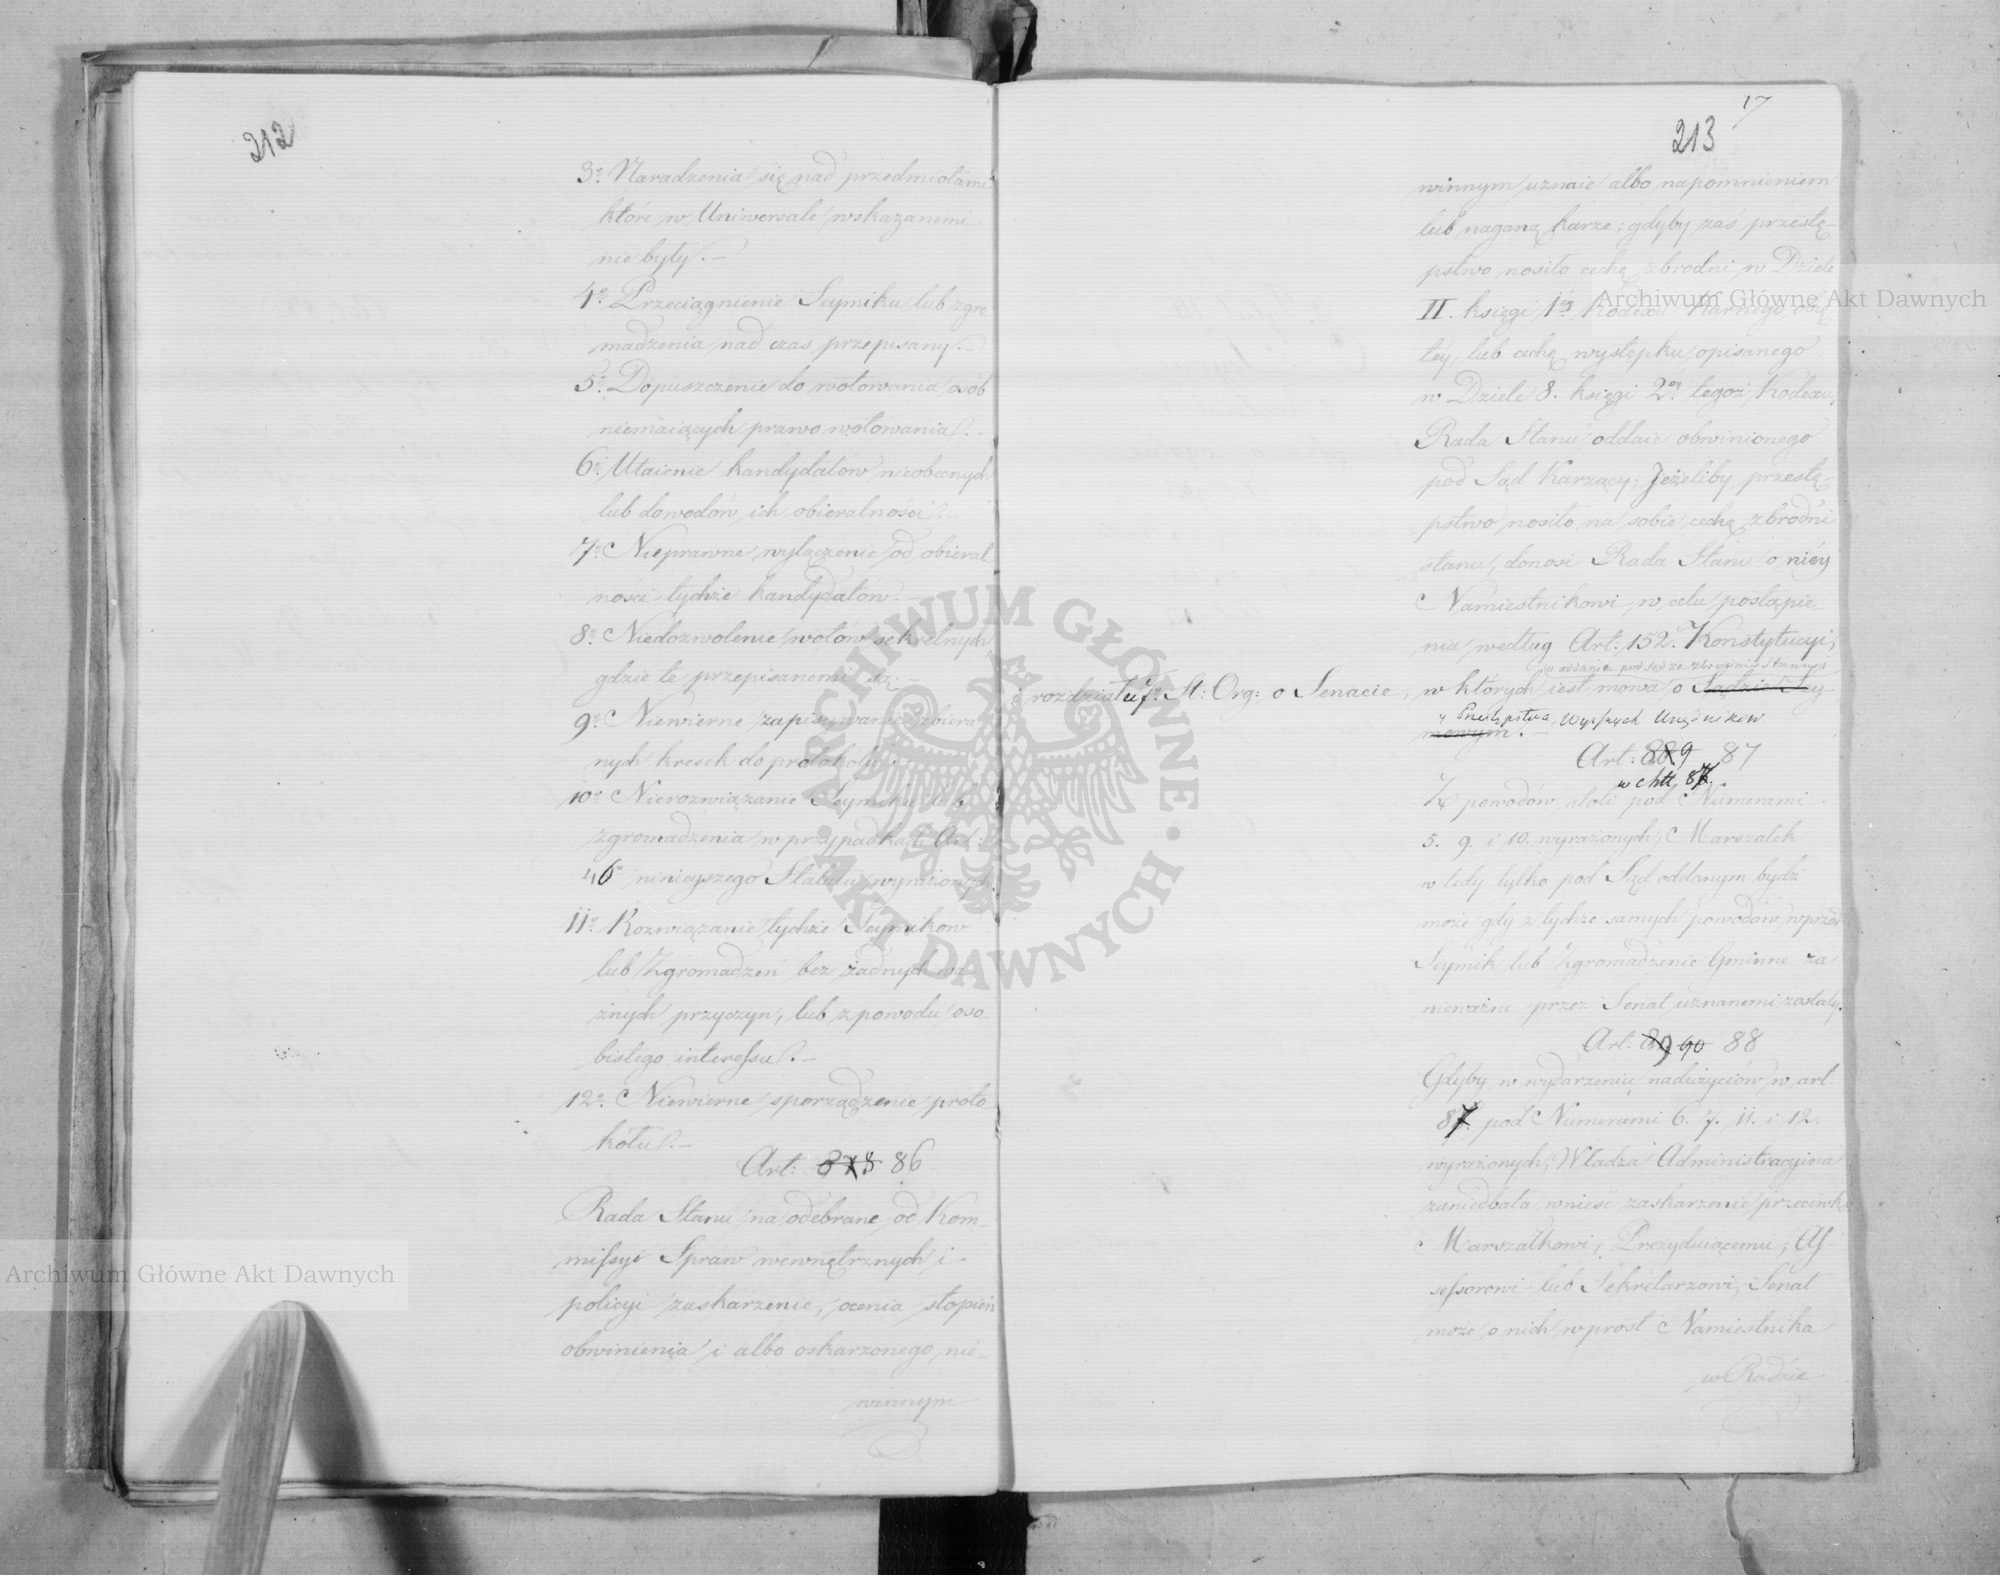 212
3º Naradzenia się nad przedmiotami
które w Uniwersale wskazanemi
nie były. —
4º Przeciągnienie Seymiku lub zgro
madzenia nad czas przepisany. —
5º Dopuszczenie do wotowania osób
niemaiących prawo wotowania. —
6º Utaienie kandydatów nieobecnych
lub dowodów ich obieralności. —
7º Nieprawne wyłączenie od obieral
ności tychże kandydatow. —
8º Niedozwolenie wotów sekretnych,
gdzie te przepisanemi są. —
9º Niewierne zapisywanie zbiera
nych kresek do protokołu.
10º Nierozwiązanie Seymiku lub
zgromadzenia w przypadkach Art:
46º ninieyszego Statutu wyrażonych.
11º Rozwiązanie tychże Seymików
lub Zgromadzeń bez żadnych wa
żnych przyczyn, lub z powodu oso
bistego interessu. —
12º Niewierne sporządzenie proto
kółu. —
Art: 878 86
Rada Stanu na odebrane od Kom
missyi Spraw wewnętrznych i
policyi zaskarzenie, ocenia stopień
obwinienia i albo oskarzonego nie
winnym
17
213
winnym uznaie albo napomnieniem
lub naganą karze; gdyby zaś przestę
pstwo nosiło cechę zbrodni w Dziele
II. księgi 1éy Kodexu Karnego obię
téy, lub cechę występku opisanego
w Dziele 8. księgi 2éy tegoż Kodexu,
Rada Stanu oddaie obwinionego
pod Sąd Karzący. Jeżeliby przestę
pstwo nosiło na sobie cechę zbrodni
stanu, donosi Rada Stanu o niéy
Namiestnikowi w celu postąpie
nia według Art: 152. Konstytucyi,
o oddaniu pod sąd za zbrodnie stanu i
i rozdziału St: Org: o Senacie, w których iest mowa o Sądzie Sey
y Przestępstwa Wyższych Urzędników
mowym. —
Art: 889 87
w Artt 87.
Z powodów atoli pod Numerami
5. 9. i 10. wyrażonych, Marszałek
w tedy tylko pod Sąd oddanym bydź
może gdy z tychże samych powodów wprzód
Seymik lub Zgromadzenie Gminne za
nieważne przez Senat uznanemi zostały.
Art: 90 88
Gdyby w wydarzeniu nadużyciów w art.
87. pod Numerami 6. 7. 11. i 12.
wyrażonych, Władza Administracyina
zaniedbała wnieść zaskarzenie przeciwko
Marszałkowi, Prezyduiącemu, As
sessorowi lub Sekretarzowi, Senat
może o nich wprost Namiestnika
w Radzie
Archiwum Główne Akt Dawnych
Archiwum Główne Akt Dawnych
ARCHIWUM GŁÓWNE · AKT DAWNYCH ·